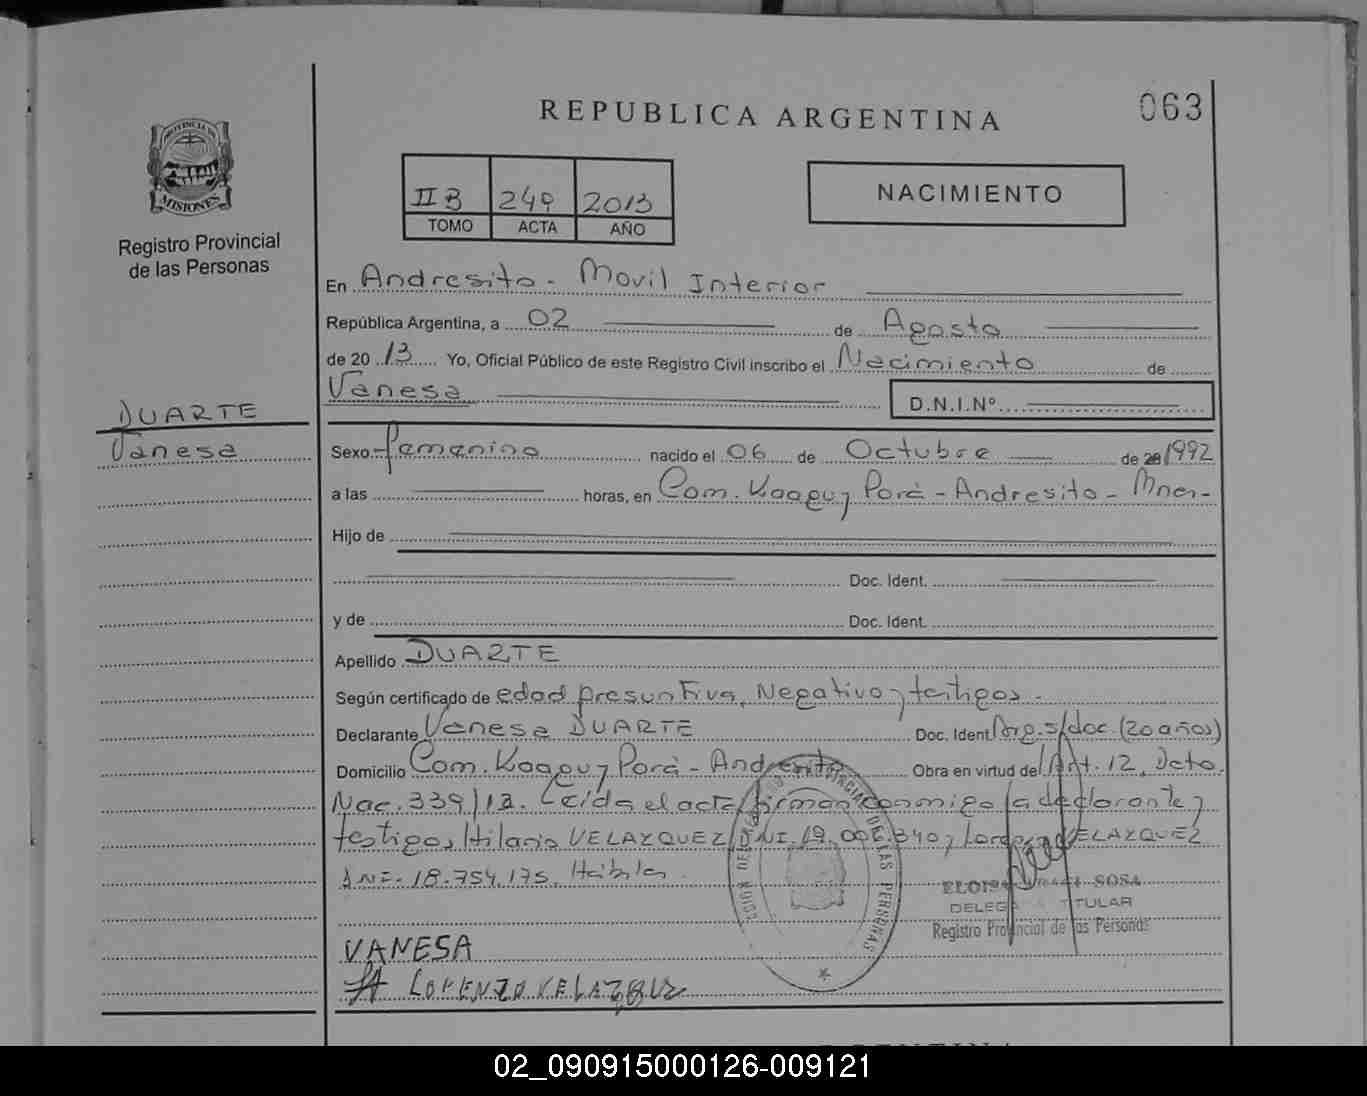 063
REPUBLICA ARGENTINA
PROVINCIA DE
MISIONES
Registro Provincial
de las Personas
II B 249 2013
TOMO ACTA AÑO
NACIMIENTO
En Andresito - Movil Interior
República Argentina, a 02 de Agosto
de 20 13 Yo, Oficial Público de este Registro Civil inscribo el Nacimiento de
Vanesa D.N.I.Nº
DUARTE
Vanesa
Sexo femenino nacido el 06 de Octubre de 1992
a las horas, en Com. Kaaguy Porá - Andresito - Mnes-
Hijo de
Doc. Ident.
y de Doc. Ident.
Apellido DUARTE
Según certificado de edad presuntiva, Negativo y testigos.
Declarante Vanesa DUARTE Doc. Ident Arg. s/doc. (20 años)
Domicilio Com. Kaaguy Porá - Andresito Obra en virtud del Art. 12, Dcto.
Nac. 339/13. Leída el acta firman conmigo la declarante y
testigos Hilario VELAZQUEZ DNI. 19.006.340 y Lorenzo VELAZQUEZ
DNI. 18.754.175. Hábiles.
SOSA
DELEGA TITULAR
Registro Provincial de las Personas
VANESA
LORENZO VELAZQUEZ
REPUBLICA ARGENTINA
02_090915000126-009121